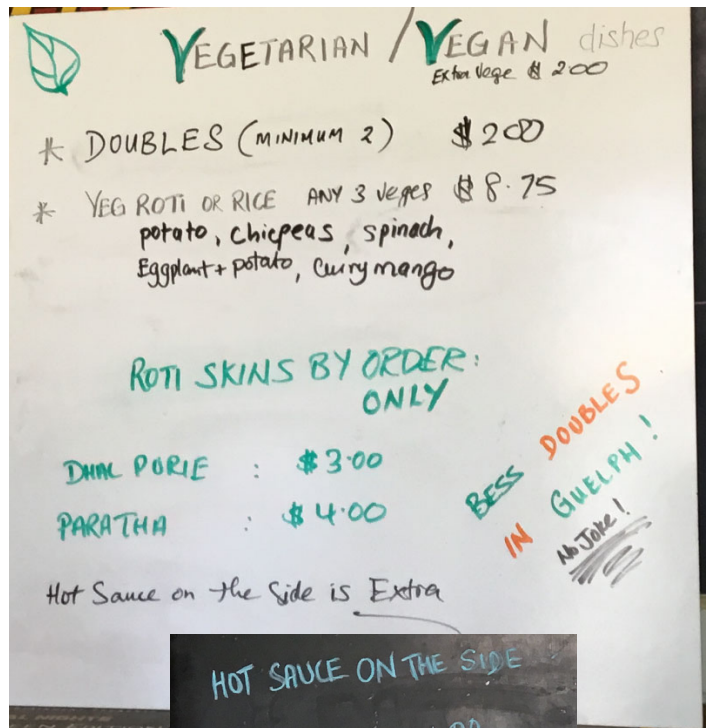 VEGETARIAN / VEGAN dishes
Extra Vege $ 200
* DOUBLES (MINIMUM 2) $ 200
* VEG ROTI OR RICE ANY 3 Veges $ 8.75
potato, Chicpeas, spinach,
Eggplant + potato, Curry mango
ROTI SKINS BY ORDER:
ONLY
DHAL PORIE : $ 3.00
PARATHA : $ 4.00
BESS DOUBLES
IN GUELPH!
No Joke!
Hot Sauce on the Side is Extra
HOT SAUCE ON THE SIDE